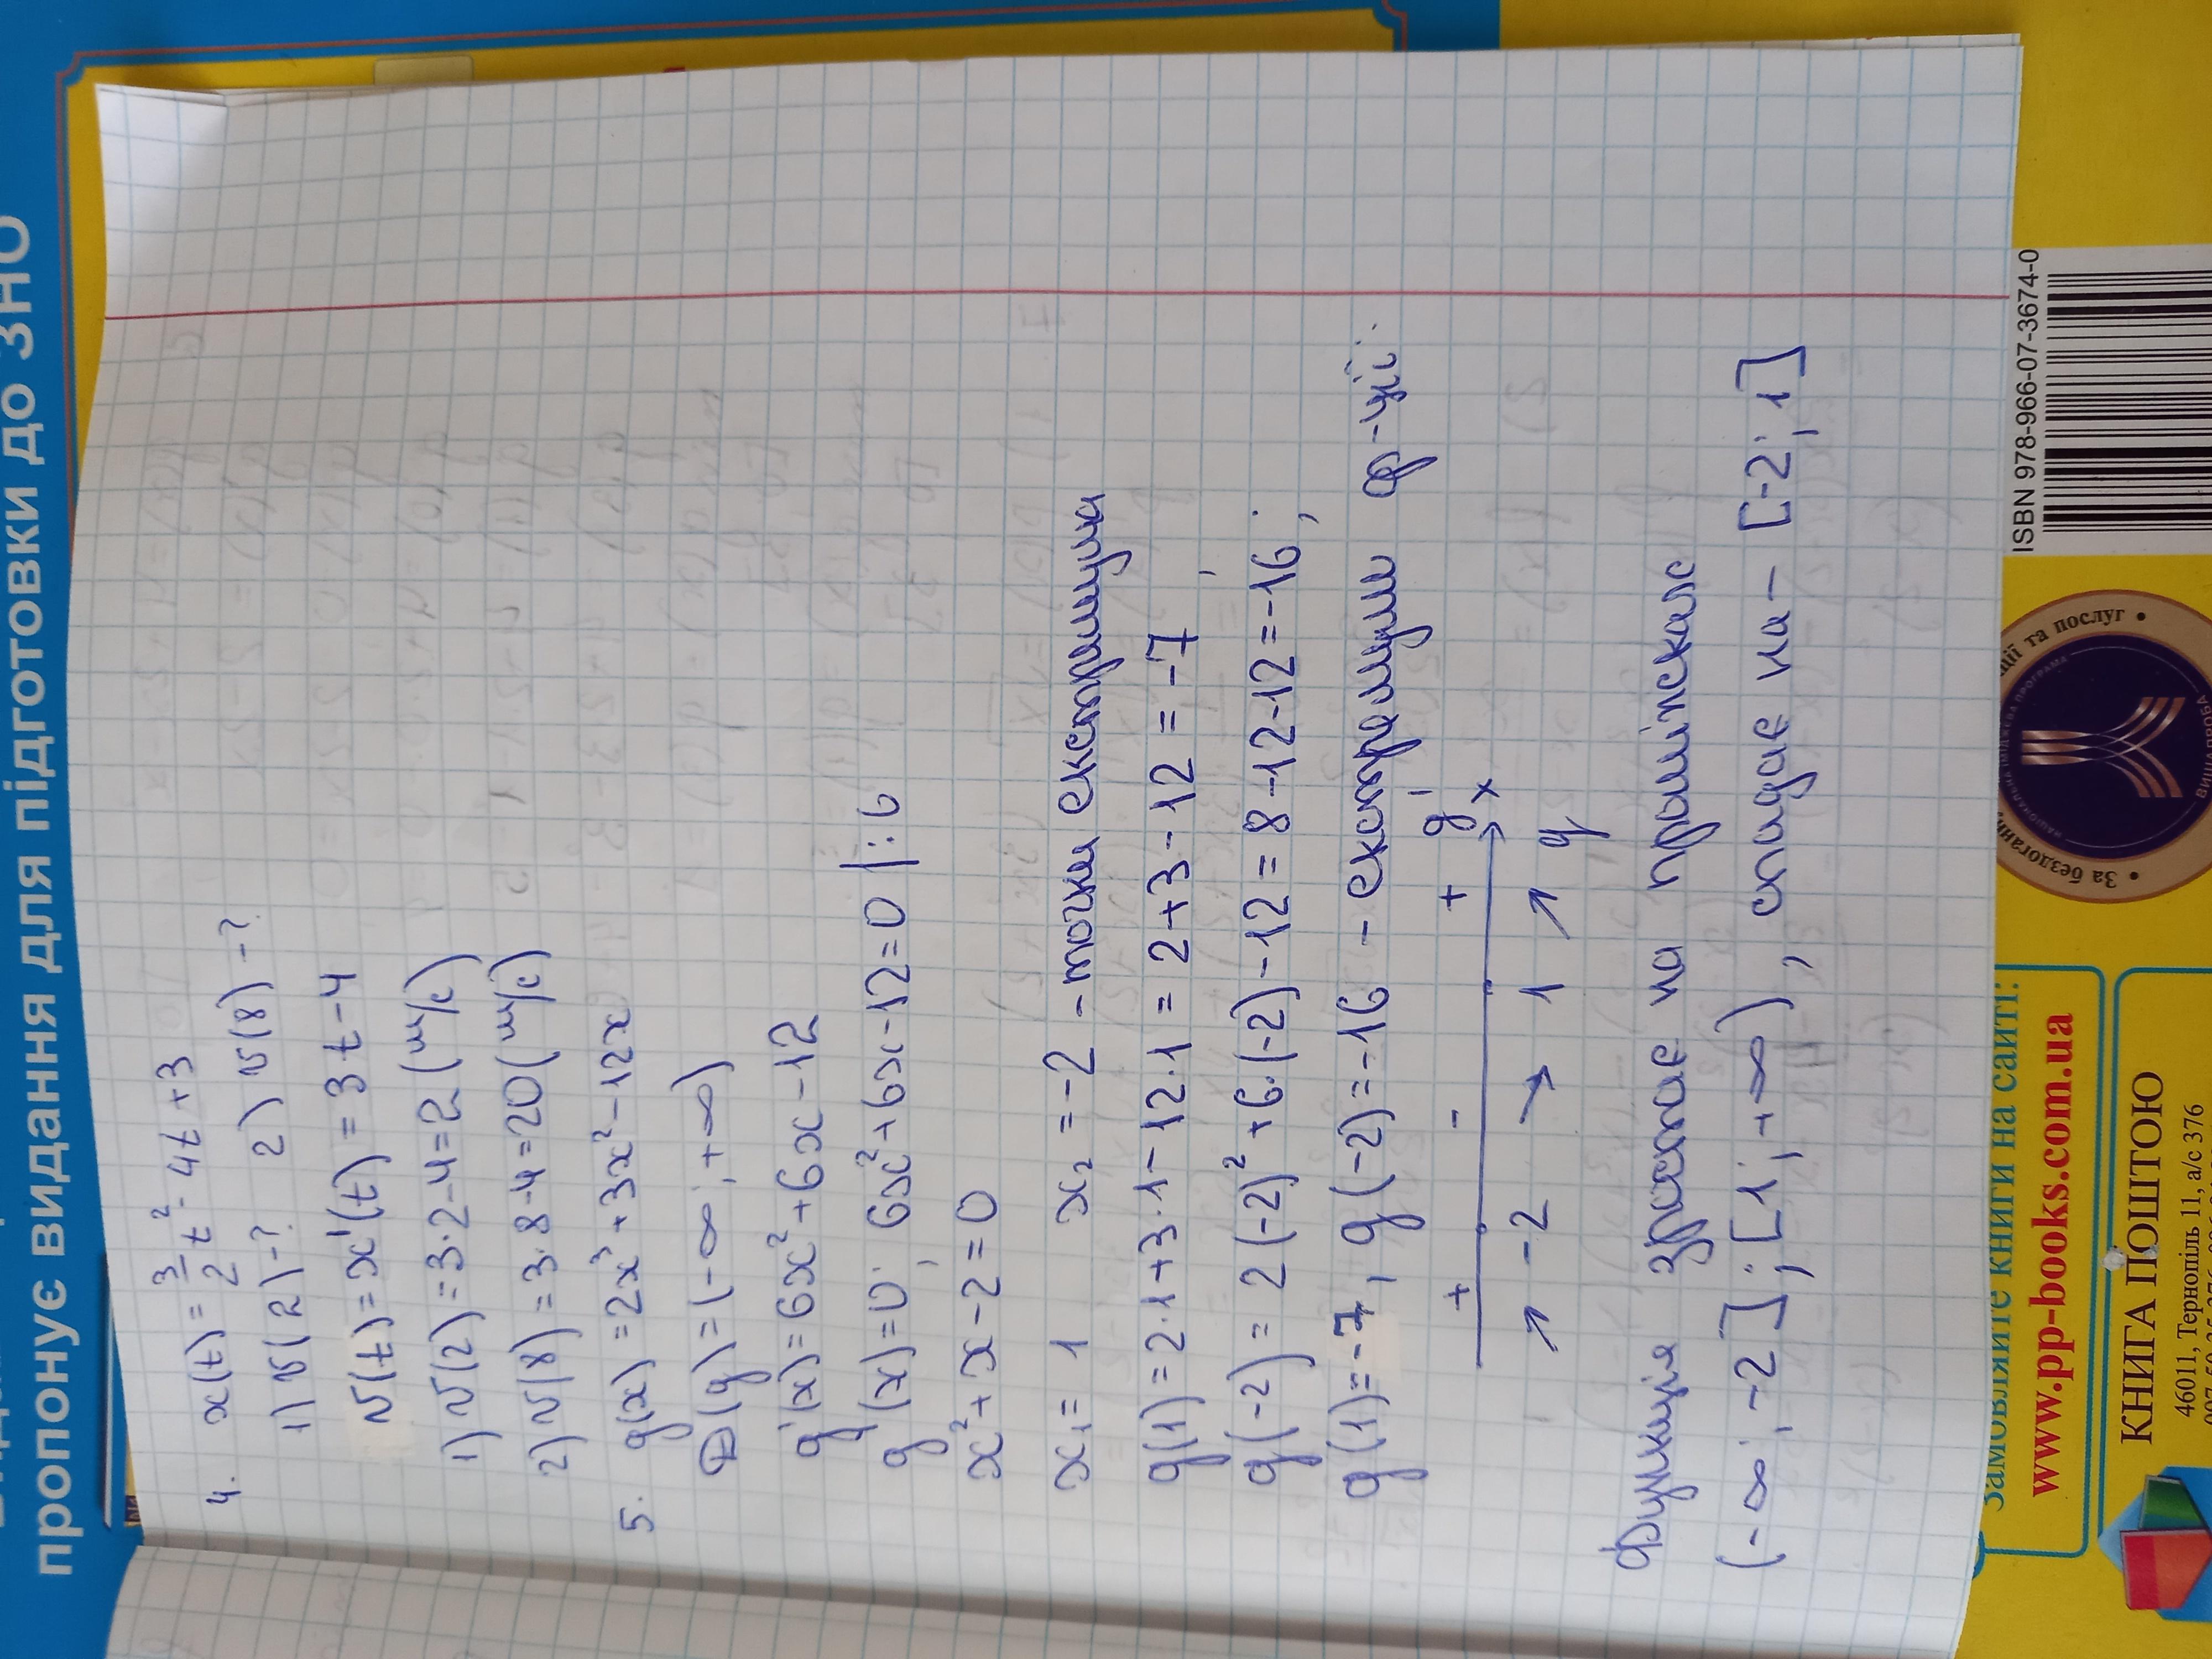 4. x(t) = 3/2 t² - 4t + 3
1) v(2) -? 2) v(8) -?
v(t) = x'(t) = 3t - 4
1) v(2) = 3·2-4=2 (м/с)
2) v(8) = 3·8-4=20 (м/с)
5. g(x) = 2x³ + 3x² - 12x
D(g) = (-∞; +∞)
g'(x) = 6x² + 6x - 12
g'(x) = 0; 6x² + 6x - 12 = 0 |:6
x² + x - 2 = 0
x₁ = 1 x₂ = -2 - точки екстримума
g(1) = 2·1+3·1-12·1 = 2+3-12 = -7
g(-2) = 2(-2)² + 6·(-2) - 12 = 8-12-12 = -16;
g(1) = -7, g(-2) = -16 - екстремуми ф-ції.
+ - + g'
x
-2 1 g
Функція зростає на проміжках
(-∞; -2]; [1; +∞), спадає на - [-2; 1]
пропонує видання для підготовки до ЗНО
ISBN 978-966-07-3674-0
та послуг •
• За бездоганн
НАЦІОНАЛЬНА ІМІДЖЕВА ПРОГРАМА
ВИЩА ПРОБА
Замовляйте книги на сайті:
www.pp-books.com.ua
КНИГА ПОШТОЮ
46011, Тернопіль 11, а/с 376